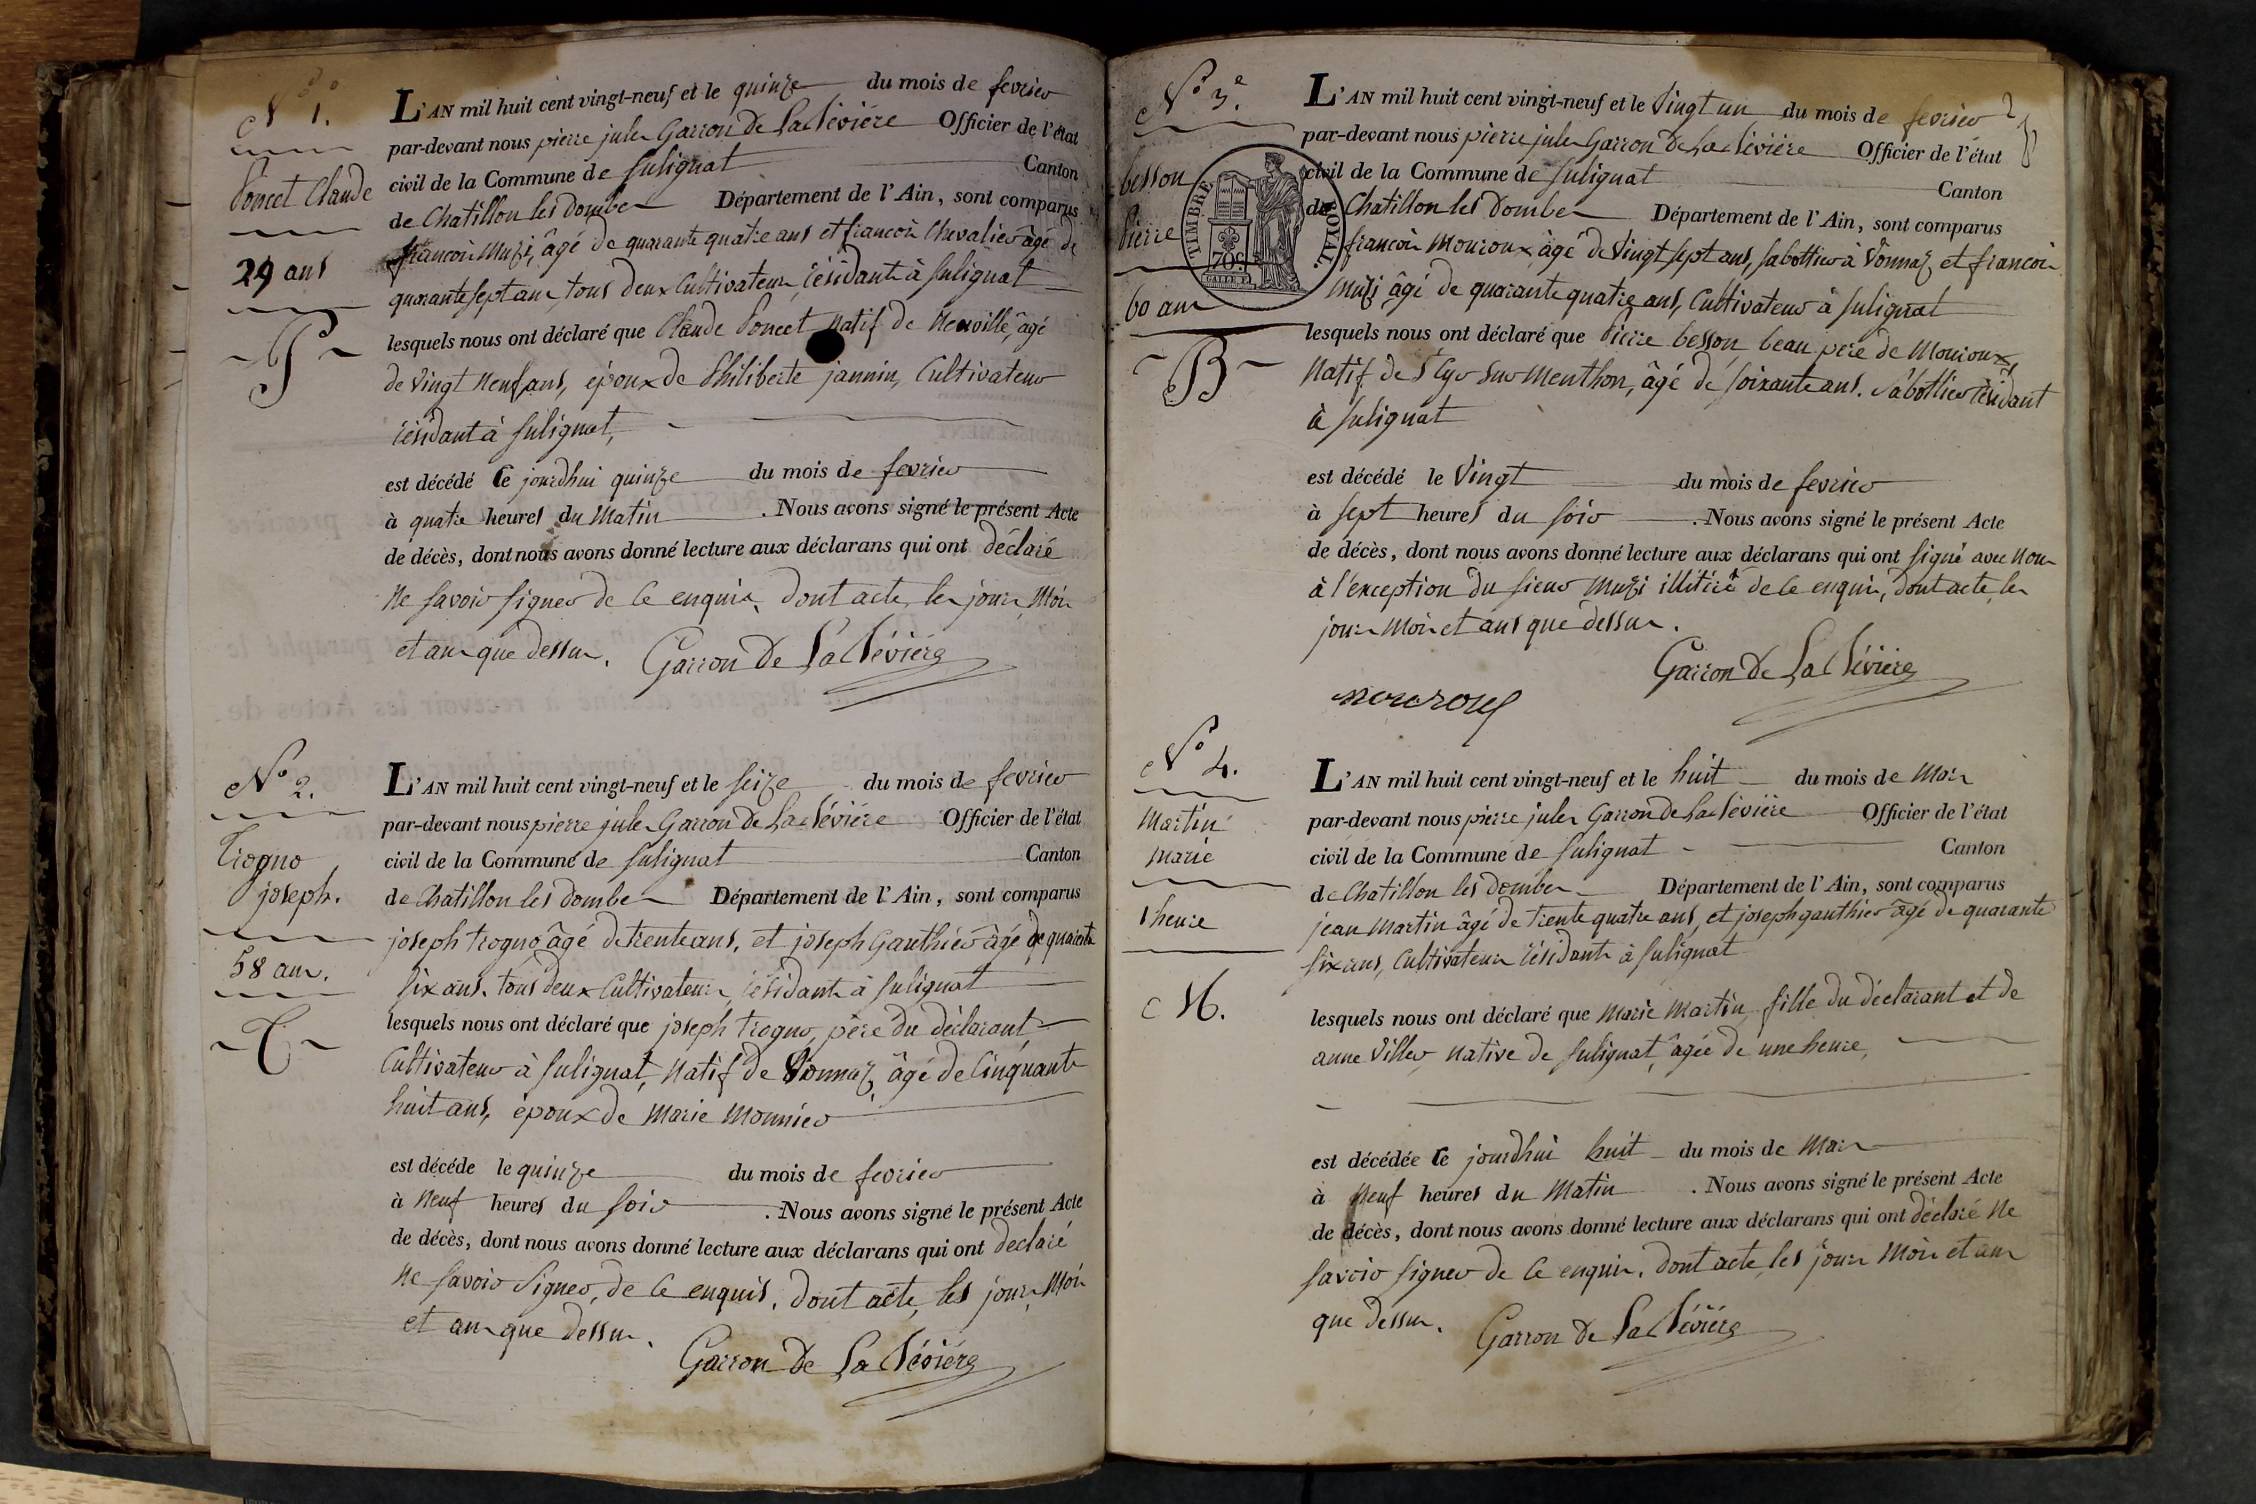 N.º 1.º
Poncet Claude
29 ans
P
L'AN mil huit cent vingt-neuf et le quinze du mois de fevrier
par-devant nous pierre jules Garron De La Bévière Officier de l'état
civil de la Commune de Sulignat Canton
de Chatillon les dombes Département de l'Ain, sont comparus
francois Muzi, âgé de quarante quatre ans et francois Chevalier âgé de
quarante sept ans, tous deux Cultivateurs, résidants à Sulignat
lesquels nous ont déclaré que Claude Poncet natif de Neuville, âgé
de vingt neuf ans, époux de Philiberte jannin, Cultivateur
résidant à Sulignat,
est décédé Ce jourdhui quinze du mois de fevrier
à quatre heures du Matin . Nous avons signé le présent Acte
de décès, dont nous avons donné lecture aux déclarans qui ont déclaré
Ne savoir signer de ce enquis, dont acte, les jour, Mois
et ans que dessus. Garron De La Bévière
Nº 2.
Trogno
joseph.
58 ans.
T
L'AN mil huit cent vingt-neuf et le seize du mois de fevrier
par-devant nous pierre jules Garron De La Bévière Officier de l'état
civil de la Commune de Sulignat Canton
de Chatillon les dombes Département de l'Ain, sont comparus
joseph trogno âgé de trente ans, et joseph Gauthier âgé de quarante
six ans, tous deux Cultivateurs, résidants à Sulignat
lesquels nous ont déclaré que joseph trogno, père du déclarant,
Cultivateur à Sulignat, Natif de Vonnaz, âgé de Cinquante
huit ans, époux de Marie Monnier
est décéde le quinze du mois de fevrier
à Neuf heures du soir . Nous avons signé le présent Acte
de décès, dont nous avons donné lecture aux déclarans qui ont declaré
Ne savoir signer, de ce enquis, dont acte, les jour, Mois
et ans que dessus. Garron De La Bévière
Nº 3.e
besson
Pierre
60 ans
B
TIMBRE ROYAL.
70 c.
L'AN mil huit cent vingt-neuf et le Vingt un du mois de fevrier
par-devant nous pierre jules Garron De La Bévière Officier de l'état
civil de la Commune de Sulignat Canton
de Chatillon les dombes Département de l'Ain, sont comparus
francois Mouroux, âgé de Vingt sept ans, sabottier à Vonnaz et francois
Muzi âgé de quarante quatre ans, Cultivateur à Sulignat
lesquels nous ont déclaré que Pierre besson beau pere de Mouroux,
Natif de St Cyr sur Menthon, âgé de soixante ans. Sabottier résidant
à Sulignat
est décédé le Vingt du mois de fevrier
à sept heures du soir . Nous avons signé le présent Acte
de décès, dont nous avons donné lecture aux déclarans qui ont signé avec Nous
à l'exception du sieur Muzi illitiré de ce enquis, dont acte, les
jours Mois et ans que dessus.
Garron De La Bévière
mouroux
Nº 4.
Martin
Marie
1 heure
M.
L'AN mil huit cent vingt-neuf et le huit du mois de Mars
par-devant nous pierre jules Garron De La Bévière Officier de l'état
civil de la Commune de Sulignat Canton
de Chatillon les dombes Département de l'Ain, sont comparus
jean Martin âgé de trente quatre ans, et joseph gauthier âgé de quarante
six ans, Cultivateurs résidants à Sulignat
lesquels nous ont déclaré que Marie Martin, fille du déclarant et de
anne Viller, native de Sulignat, âgée de une heure,
est décédée Ce jourdhui huit du mois de Mars
à Neuf heures du Matin . Nous avons signé le présent Acte
de décès, dont nous avons donné lecture aux déclarans qui ont déclaré Ne
savoir signer de ce enquis, dont acte, les jour Mois et ans
que dessus. Garron De La Bévière